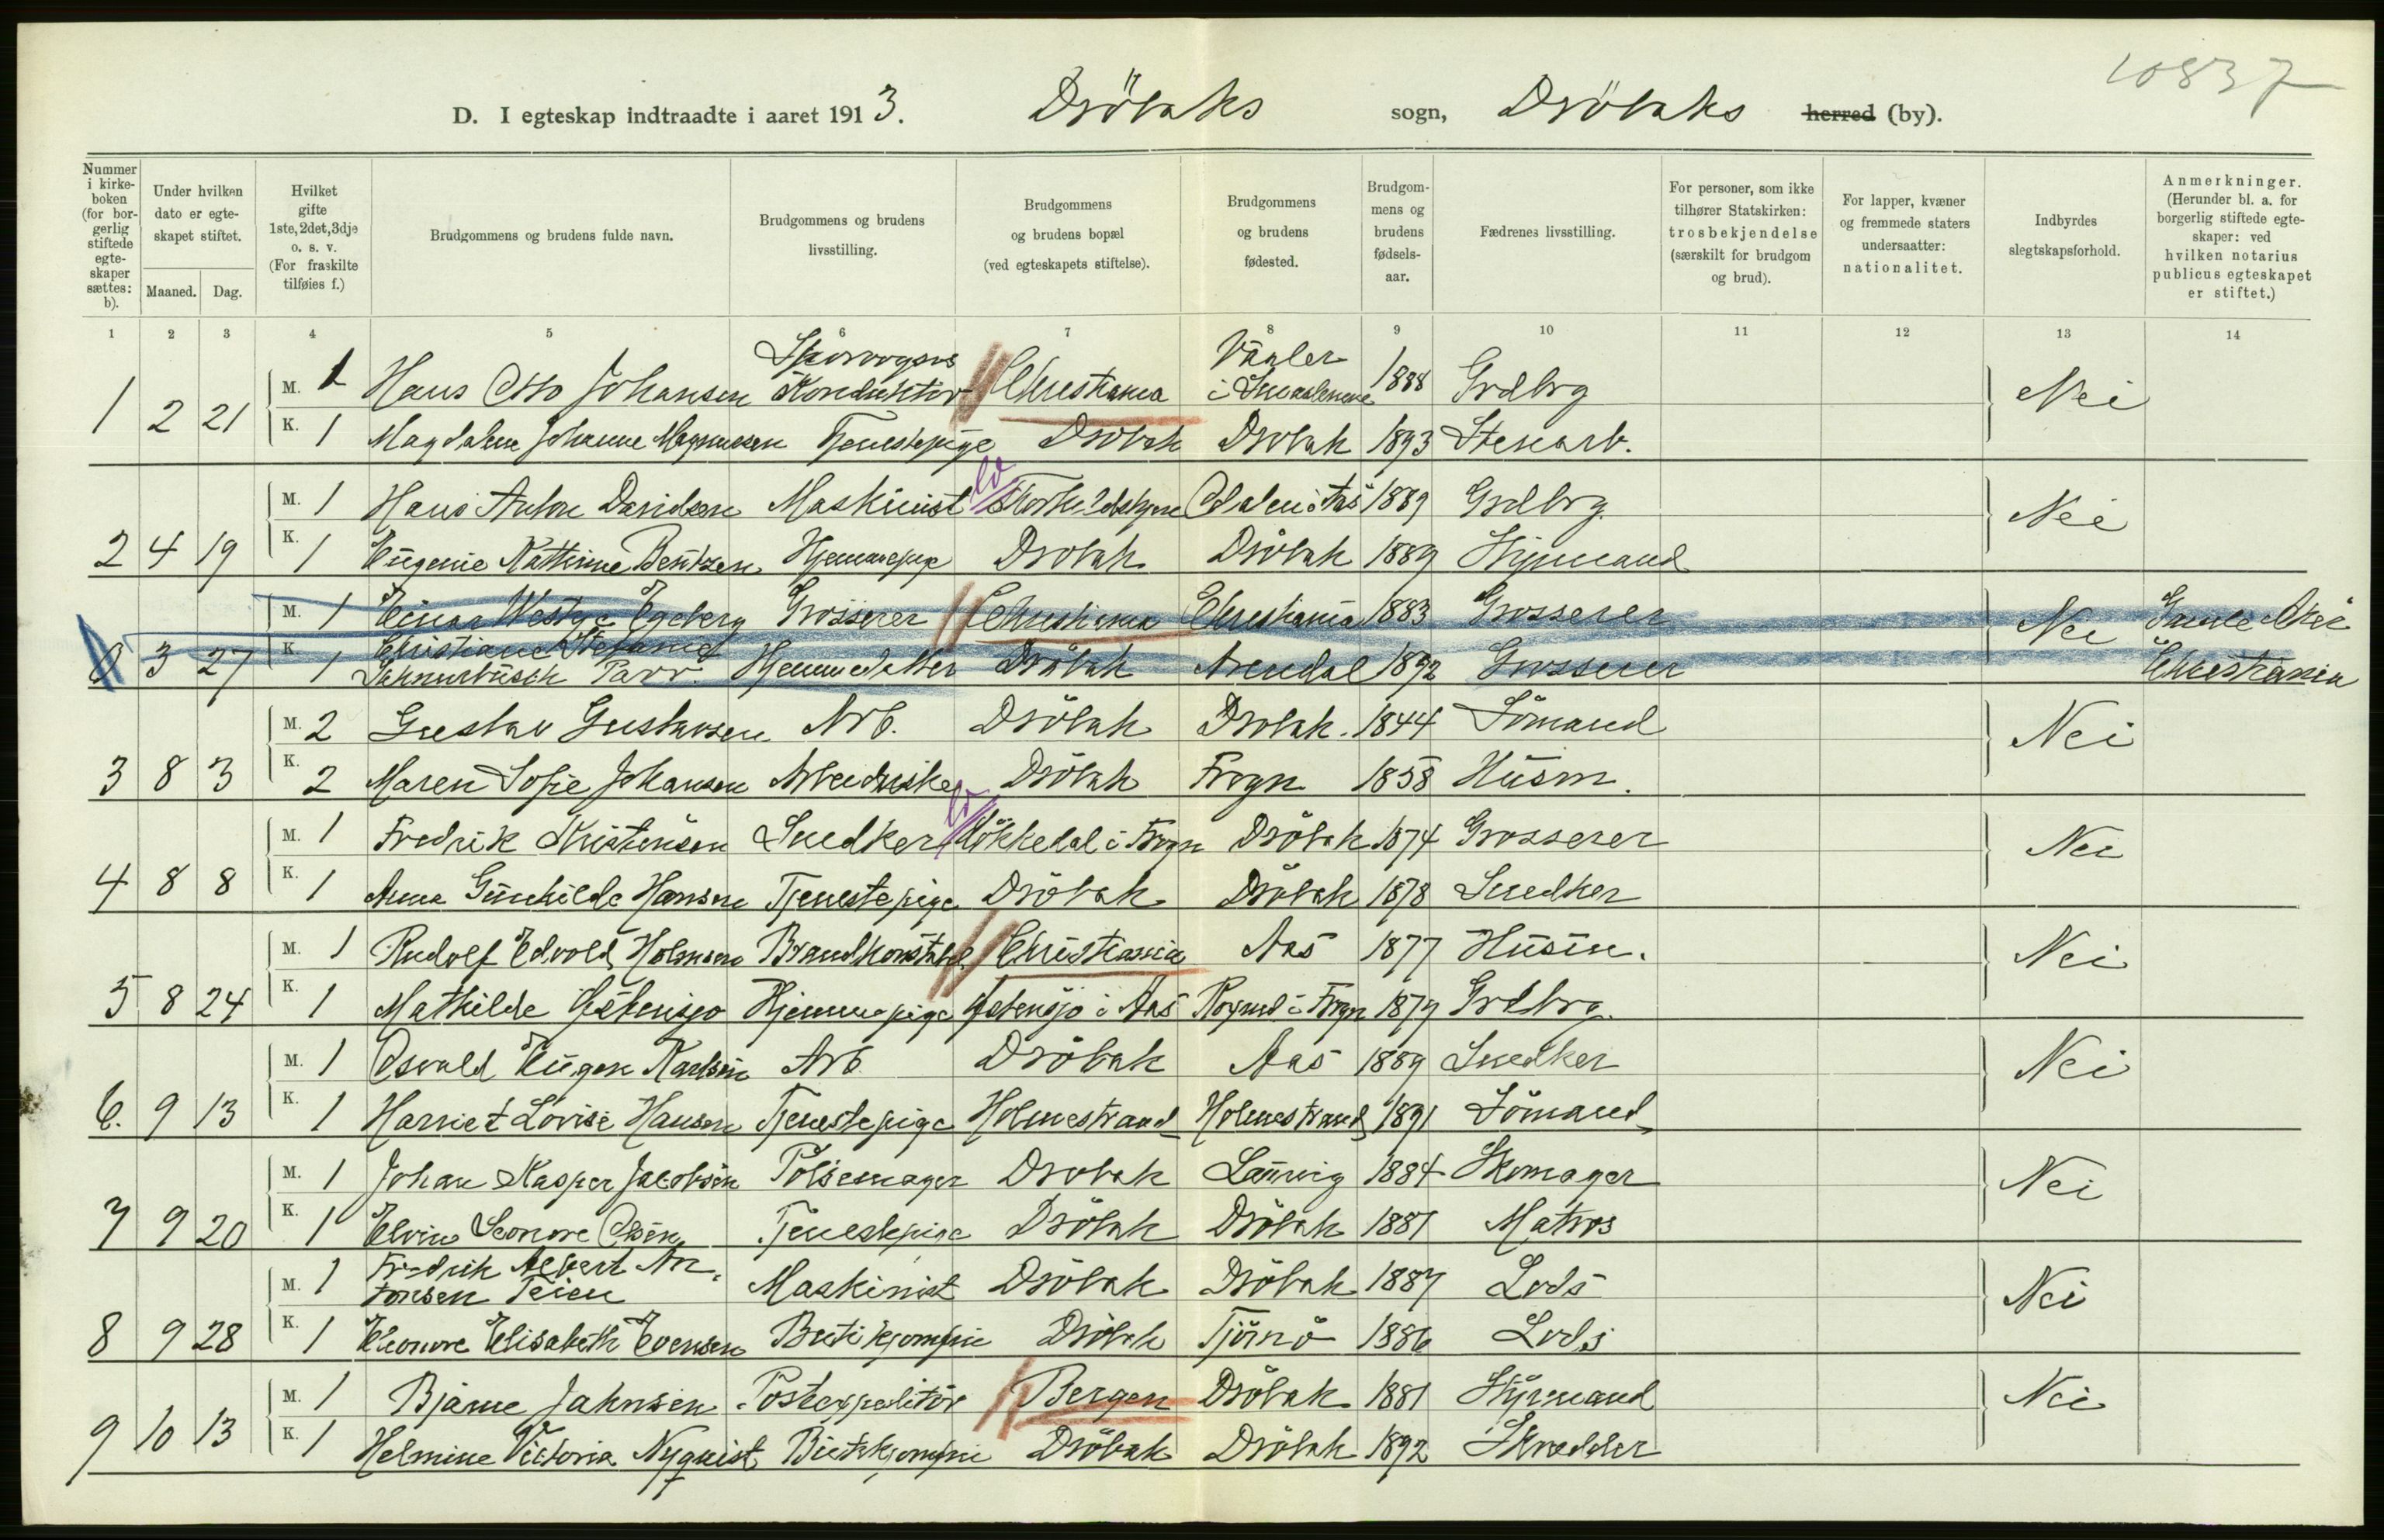 10837
D. I egteskap indtraadte i aaret 1913. Dröbaks sogn, Dröbaks herred (by).
Nummer i kirkeboken (for borgerlig stiftede egteskaper sættes: b).
Under hvilken dato er egteskapet stiftet.
Maaned. Dag.
Hvilket gifte 1ste, 2det, 3dje o. s. v. (For fraskilte tilføies f.)
Brudgommens og brudens fulde navn.
Brudgommens og brudens livsstilling.
Brudgommens og brudens bopæl (ved egteskapets stiftelse).
Brudgommens og brudens fødested.
Brudgommens og brudens fødselsaar.
Fædrenes livsstilling.
For personer, som ikke tilhører Statskirken: trosbekjendelse (særskilt for brudgom og brud).
For lapper, kvæner og fremmede staters undersaatter: nationalitet.
Indbyrdes slegtskapsforhold.
Anmerkninger. (Herunder bl. a. for borgerlig stiftede egteskaper: ved hvilken notarius publicus egteskapet er stiftet.)
1 2 3 4 5 6 7 8 9 10 11 12 13 14
M. 1 Hans Otto Johansen Sporvogns Konduktör Christiania Vaaler i Smaalenene 1888 Grdbrg Nei
1 2 21 K. 1 Magdalene Johanne Magnussen Tjenestepige Dröbak Dröbak 1893 Stenarb.
M. 1 Hans Anton Davidsen Maskinist Aas 1889 Grdbrg. Nei
2 4 19 K. 1 Eugenie Kathrine Bentzen Hjemmepige Dröbak Dröbak 1889 Styrmand
M. 1 Einar Westye Egeberg Grosserer Christiania Christiania 1883 Grosserer Nei Gamle Aker
3 27 K. 1 Christiane Stefanie Schnurbusch Parr. Hjemmedatter Dröbak Arendal 1892 Grosserer Christiania
M. 2 Gustav Gustavsen Arb. Dröbak Dröbak. 1844 Sömand Nei
3 8 3 K. 2 Maren Sofie Johansen Arbeiderske Dröbak Frogn 1858 Husm.
M. 1 Fredrik Kristensen Snedker i Frogn Dröbak 1874 Grosserer Nei
4 8 8 K. 1 Anna Gunhilde Hansen Tjenestepige Dröbak Dröbak 1878 Snedker
M. 1 Rudolf Edvold Holmsen Brandkonstabel Christiania Aas 1877 Husm. Nei
5 8 24 K. 1 Mathilde Østensjø Hjemmepige Østensjø i Aas i Frogn 1879 Grdbrg.
M. 1 Osvald Eugen Karlsen Arb. Dröbak Aas 1889 Snedker Nei
6. 9 13 K. 1 Harriet Lovise Hansen Tjenestepige Holmestrand Holmestrand 1891 Sömand
M. 1 Johan Kasper Jacobsen Pölsemager Dröbak Laurvig 1884 Skomager Nei
7 9 20 K. 1 Elvine Leonore Olsen Tjenestepige Dröbak Dröbak 1881 Matros
M. 1 Fredrik Albert Antonsen Teien Maskinist Dröbak Dröbak 1887 Lods Nei
8 9 28 K. 1 Eleonore Elisabeth Evensen Butikjomfru Dröbak Tjömö 1886 Lods
M. 1 Bjarne Jahnsen Postexpeditör Bergen Dröbak 1881 Styrmand Nei
9 10 13 K. 1 Helmine Victoria Nyquist Butikjomfru Dröbak Dröbak 1892 Skrædder